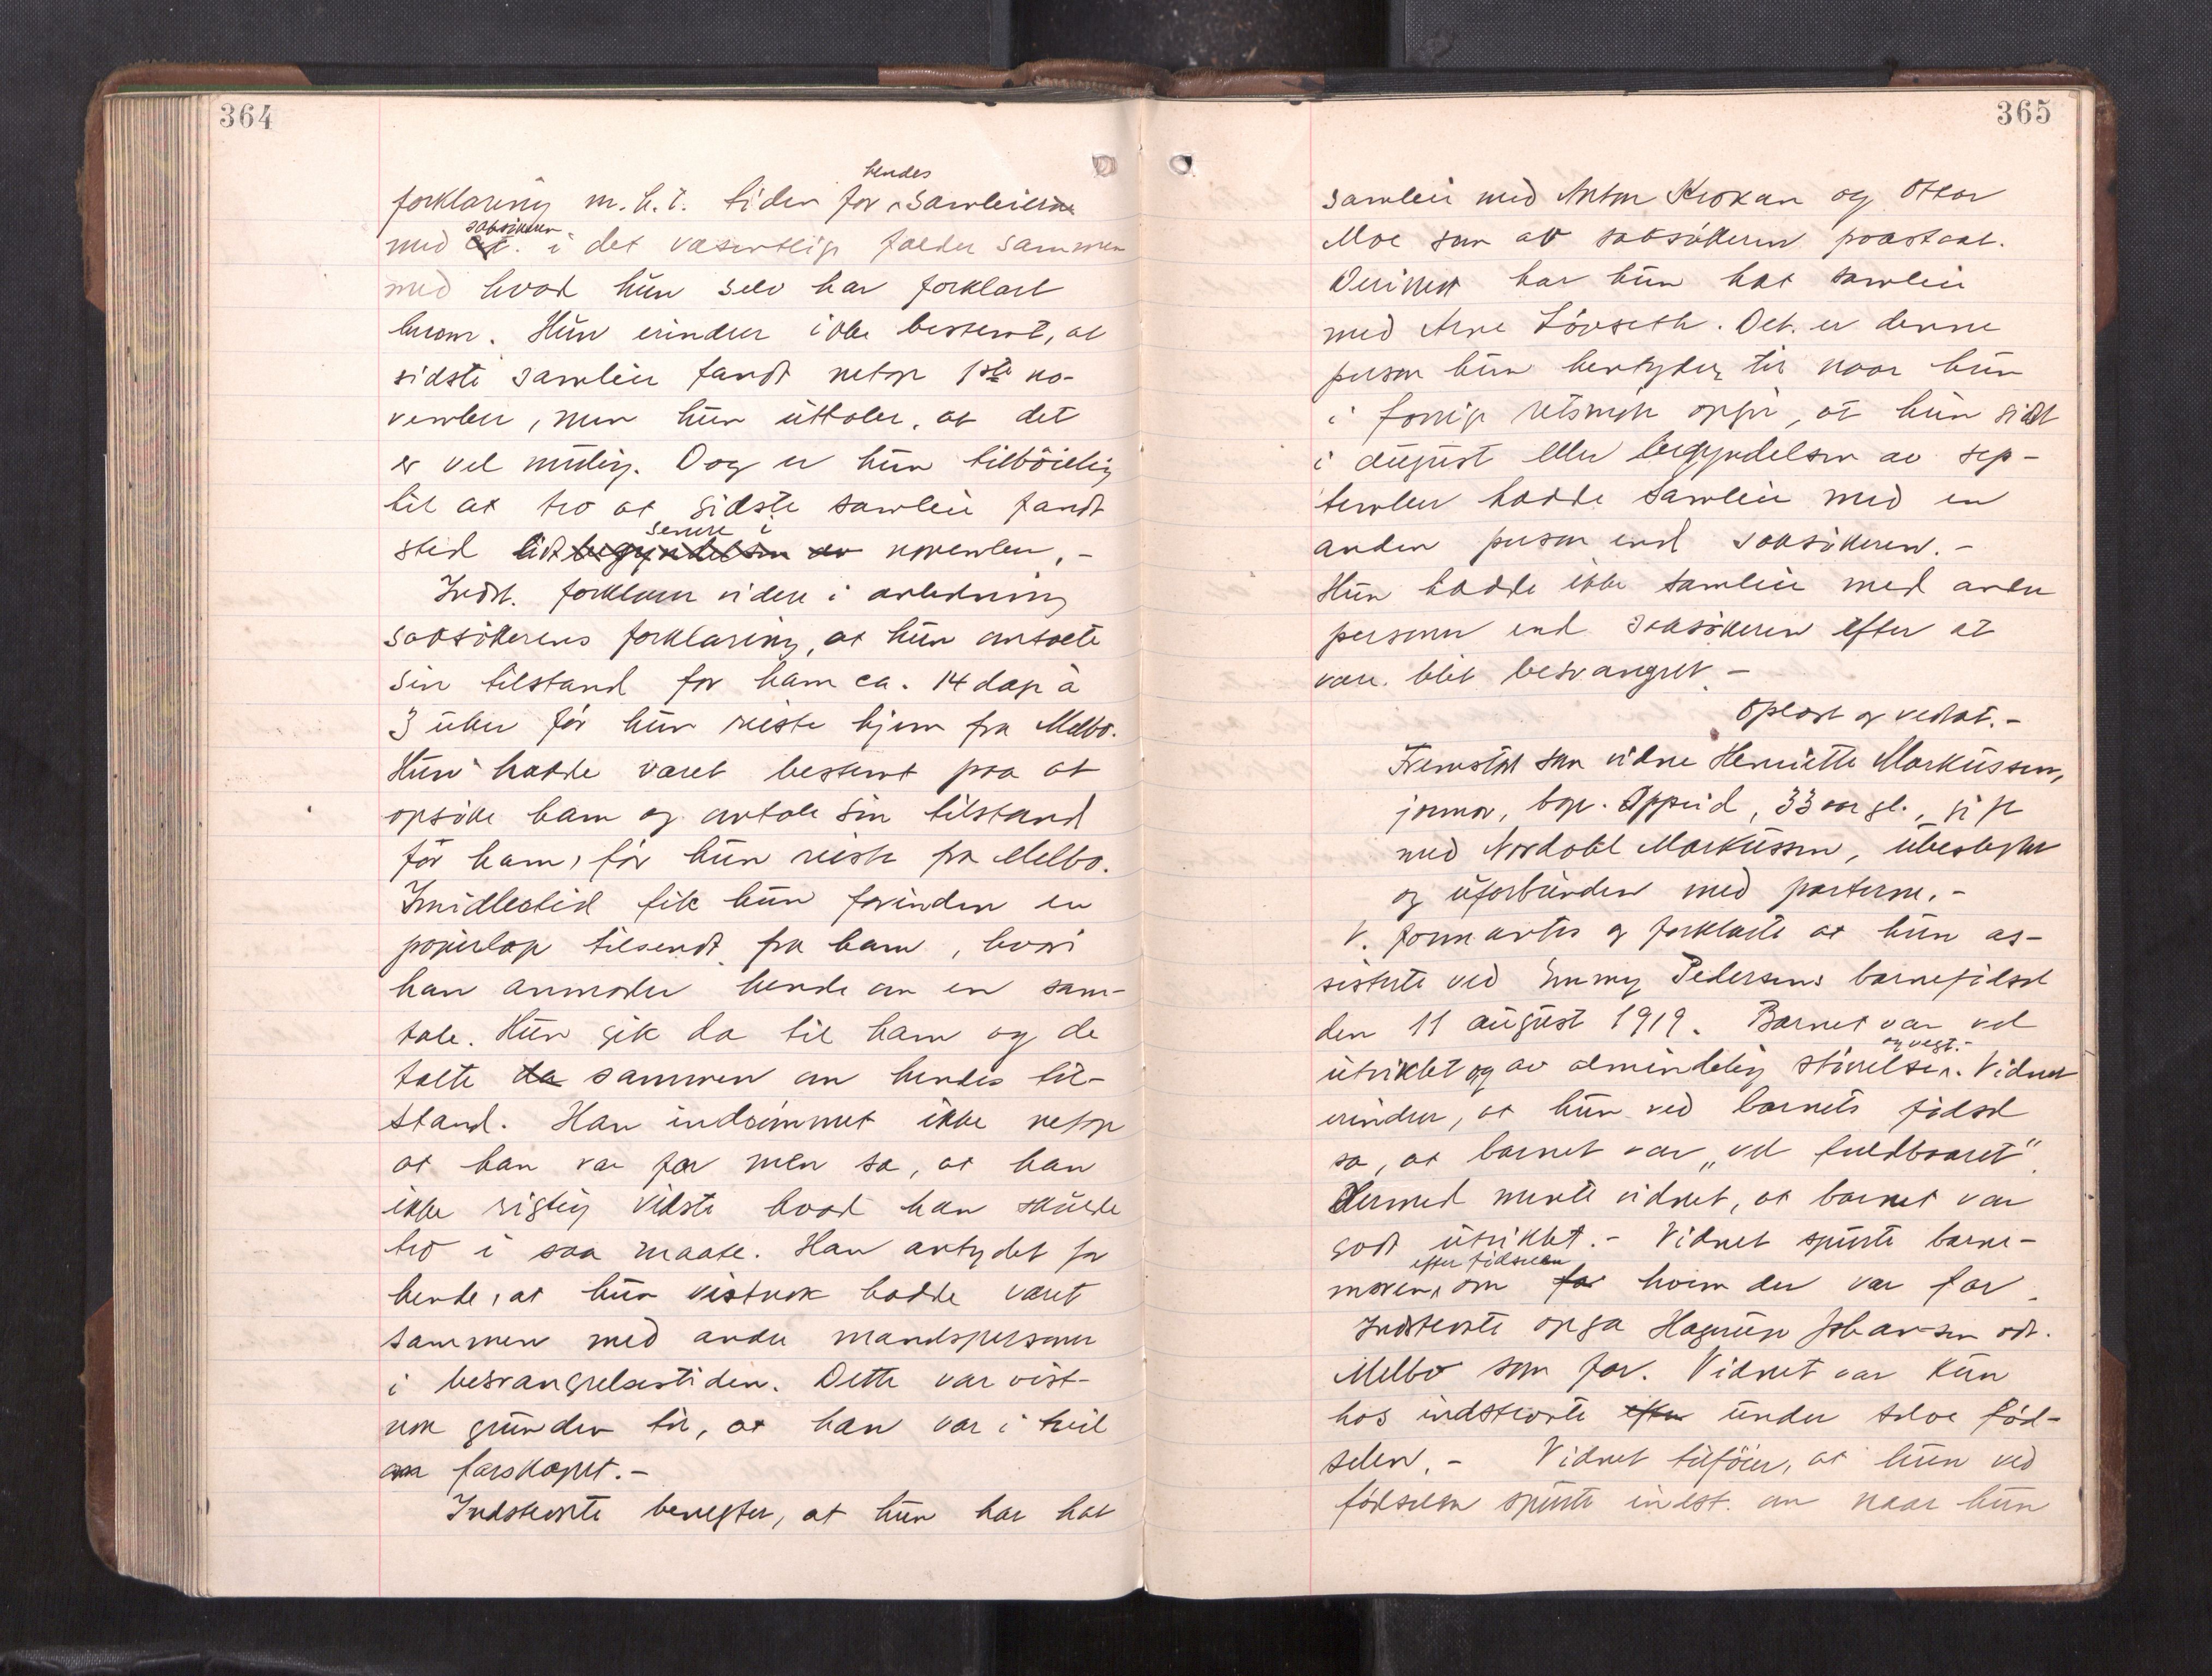 364
forklaring m. h. t. tiden for hendes samleier
med saksøkeren i det væsentlige falder sammen
med hvad hun selv har forklart
herom. Hun erindrer ikke bestemt, at
sidste samleie fandt netop 1ste no-
vember, men hun uttaler, at det
er vel mulig. Dog er hun tilbøielig
til at tro at sidste samleie fandt
sted lidt begyndelsen av senere i november. -
Indst. forklarer videre i anledning
saksøkerens forklaring, at hun omtalte
sin tilstand for ham ca. 14 dage à
3 uker før hun reiste hjem fra Melbo.
Hun hadde været bestemt paa at
opsøke ham og omtale sin tilstand
för ham, før hun reiste fra Melbo.
Imidlertid fik hun forinden en
papirlap tilsendt fra ham, hvori
han anmoder hende om en sam-
tale. Hun gik da til ham og de
talte da sammen om hendes til-
stand. Han indrømmet ikke netop
at han var far men sa, at han
ikke rigtig vidste hvad han skulde
tro i saa maate. Han antydet for
hende, at hun vistnok hadde været
sammen med andre mandspersoner
i besvangrelsestiden. Dette var vist-
nok grunden til, at han var i tvil
om farskapet. -
Indstevnte benegter, at hun har hat
365
samleie med Anton Krokan og Ottar
Moe som av saksøkeren paastaat.
Derimot har hun hat samleie
med Arne Løvseth. Det er denne
person hun hentyder til naar hun
i forrige retsmøte opgir, at hun sidst
i august eller begyndelsen av sep-
tember hadde samleie med en
anden person end saksøkeren. -
Hun hadde ikke samleie med andre
personer end saksøkeren efter at
være blit besvangret. -
Oplæst og vedtat. -
Fremstod som vidne Henriette Markussen,
jormor, bop. Oppeid, 33 aar gl., gift
med Nordahl Markussen, ubeslegtet
og uforbunden med parterne. -
V. formantes og forklarte at hun as-
sisterte ved Emmy Pedersens barnefødsel
den 11 august 1919. Barnet var vel
utviklet og av almindelig størrelse og vegt. - Vidnet
erindrer, at hun ved barnets fødsel
sa, at barnet var "vel fuldbaaret".
Dermed mente vidnet, at barnet var
godt utviklet. - Vidnet spurte barne-
moren efter fødselen om far hvem der var far.
Indstevnte opga Hagerup Johansen adr.
Melbo som far. Vidnet var kun
hos indstevnte efter under selve fød-
selen. - Vidnet tilføier, at hun ved
fødselen spurte indst. om naar hun